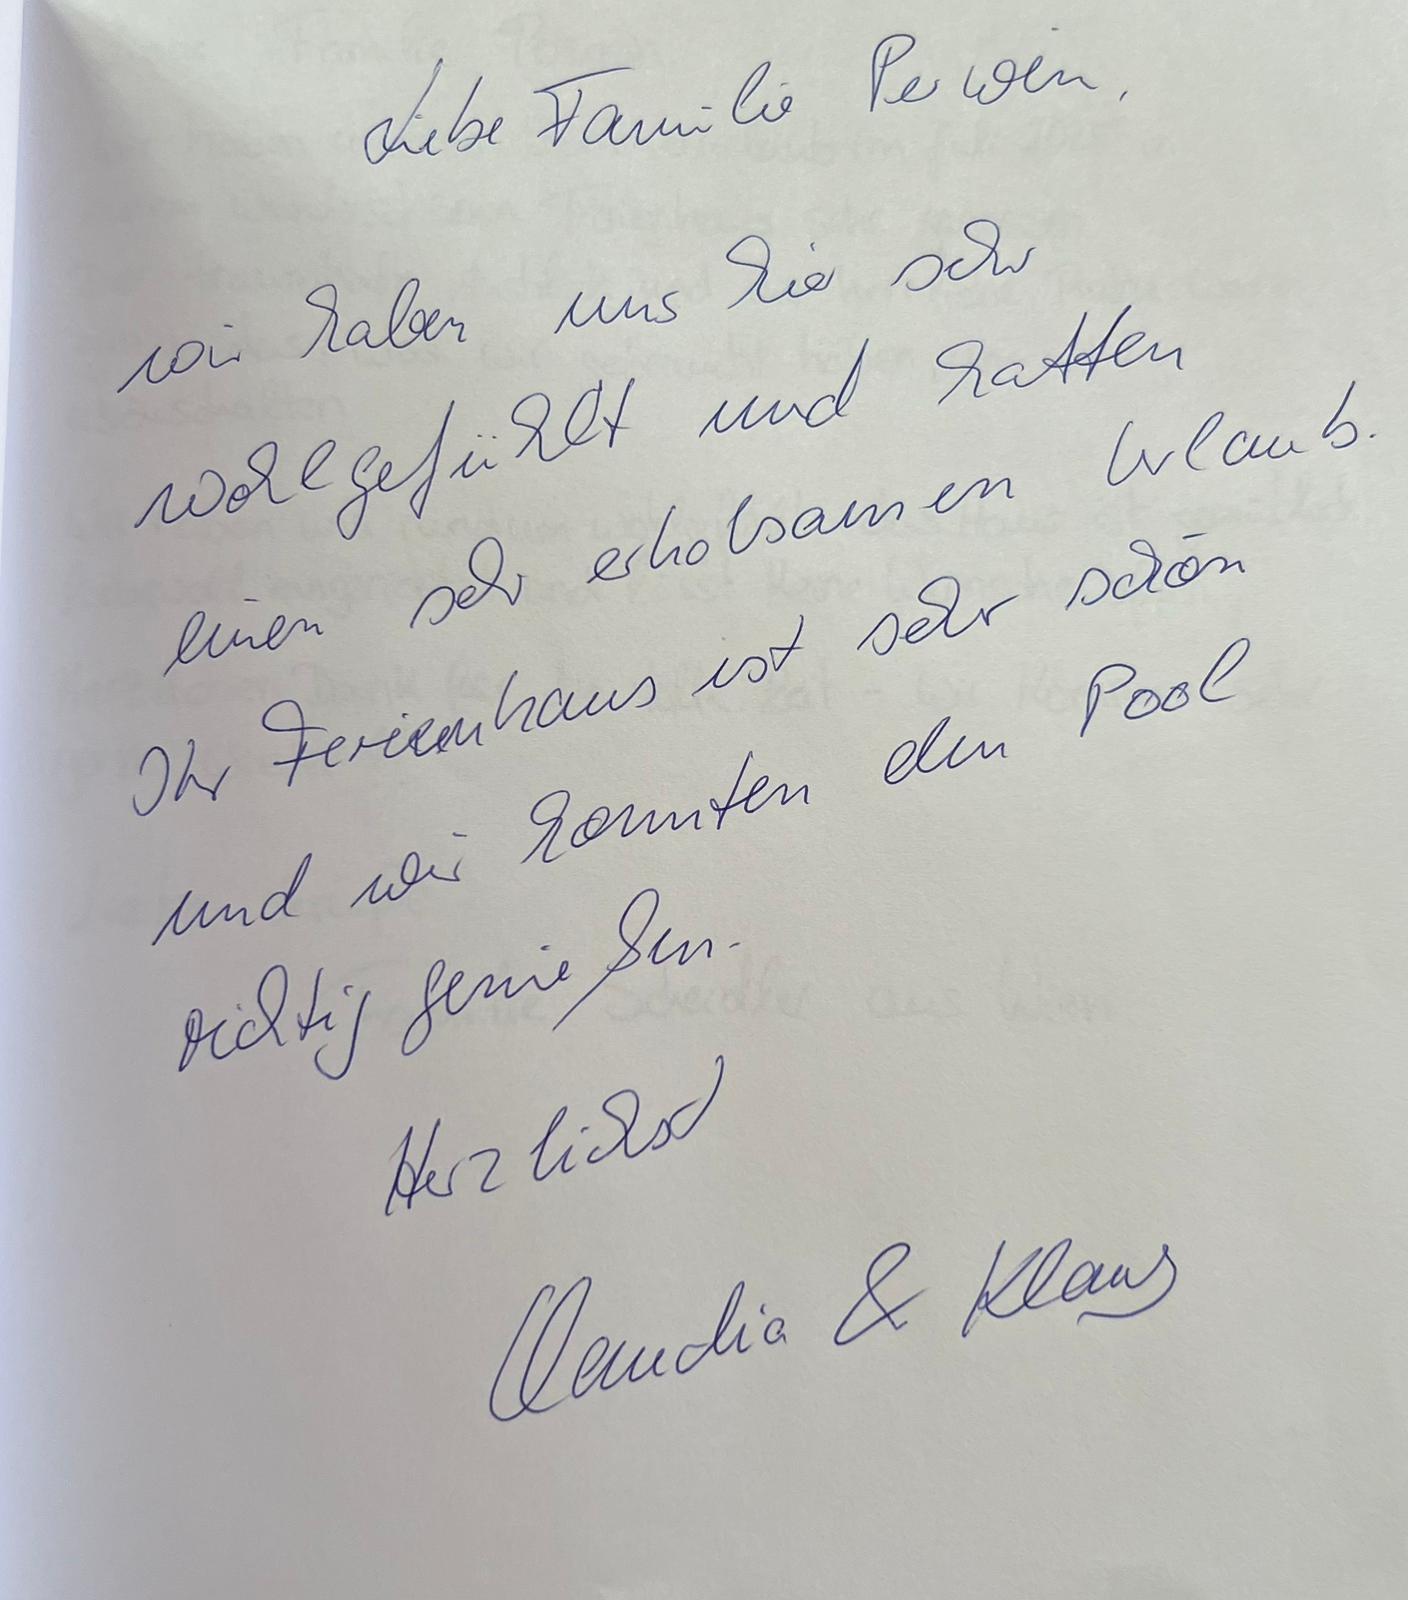 Liebe Familie Perwein,
wir haben uns hier sehr
wohlgefühlt und hatten
einen sehr erholsamen Urlaub.
Ihr Ferienhaus ist sehr schön
und wir konnten den Pool
richtig genießen.
Herzlichst
Claudia & Klaus